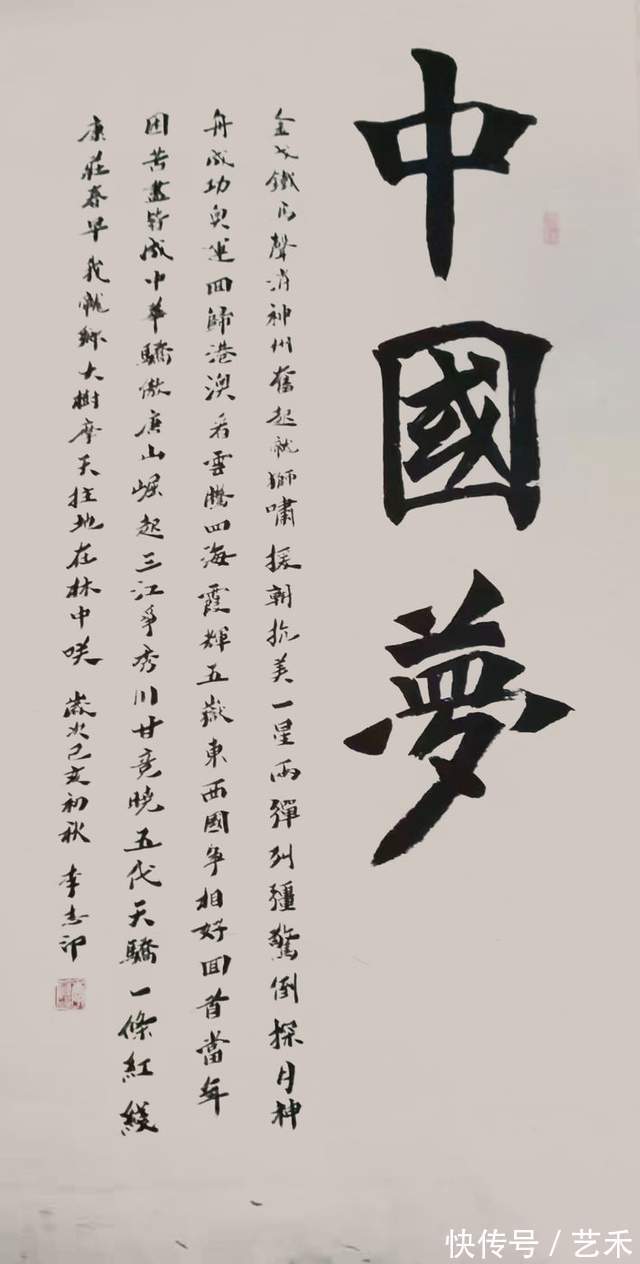 中國夢
金戈鐵馬聲消神州奮起就獅嘯援朝抗美一星兩彈列疆驚倒探月神
舟成功奥運回歸港澳看雲騰四海霞輝五嶽東西國争相好回首當年
困苦盡皆成中華驕傲唐山崛起三江爭秀川甘竟曉五代天驕一條紅綫
康莊春早我就大樹摩天拄地在林中咲 歲次己亥初秋 李志印
快传号/艺禾